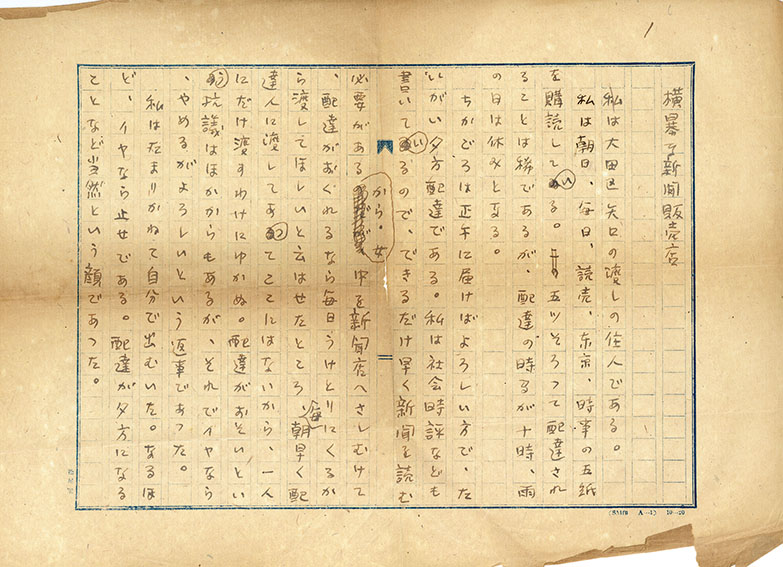 1
横暴な新聞販売店
私は大田区矢口の渡しの住人である。
私は朝日、毎日、読売、東京、時事の五紙
を購読している。五ツそろつて配達され
ることは稀であるが、配達の時ろが十時、雨
の日は休みとなる。
ちかごろは正午に届けばよろしい方で、た
いがい夕方配達である。私は社会時評なども
書いているので、できるだけ早く新聞を読む
必要があるから、女中を新聞店へさしむけて
、配達がおくれるなら毎日うけとりにくるか
ら渡してほしいと云はせたところ、毎朝早く配
達人に渡してあつてこゝにはないから、一人
にだけ渡すわけにゆかぬ。配達がおそいとい
う抗議はほかからもあるが、それでイヤなら
、やめるがよろしいという返事であつた。
私はたまりかねて自分で出むいた。なるほ
ど、イヤなら止せである。配達が夕方になる
ことなど当然という顔であつた。
(SM印 A—1) 10—20